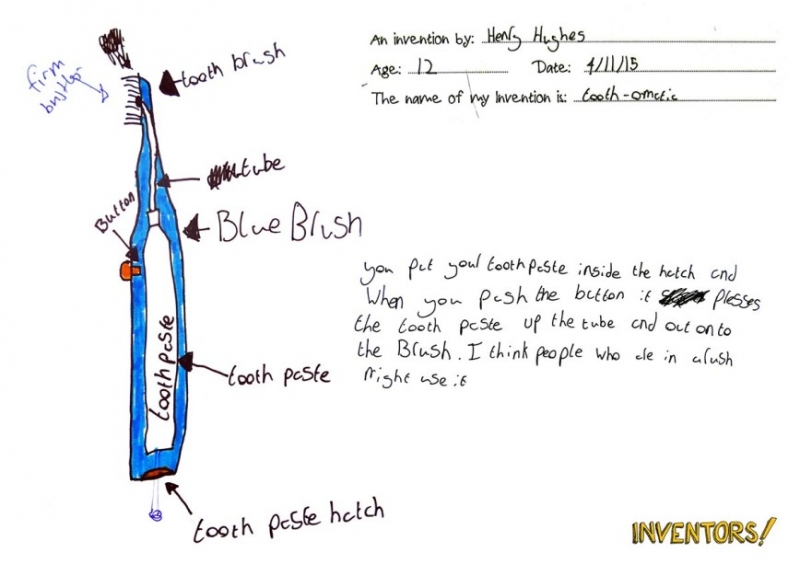 An invention by: Henry Hughes
Age: 12 Date: 4/11/15
The name of my invention is: tooth-omatic
tooth brush
firm
bristles
tube
Button
Blue Brush
you put your toothpaste inside the hatch and
When you push the button it presses
the tooth paste up the tube and out onto
the Brush. I think people who are in a rush
might use it
toothpaste
tooth paste
tooth paste hatch
INVENTORS!